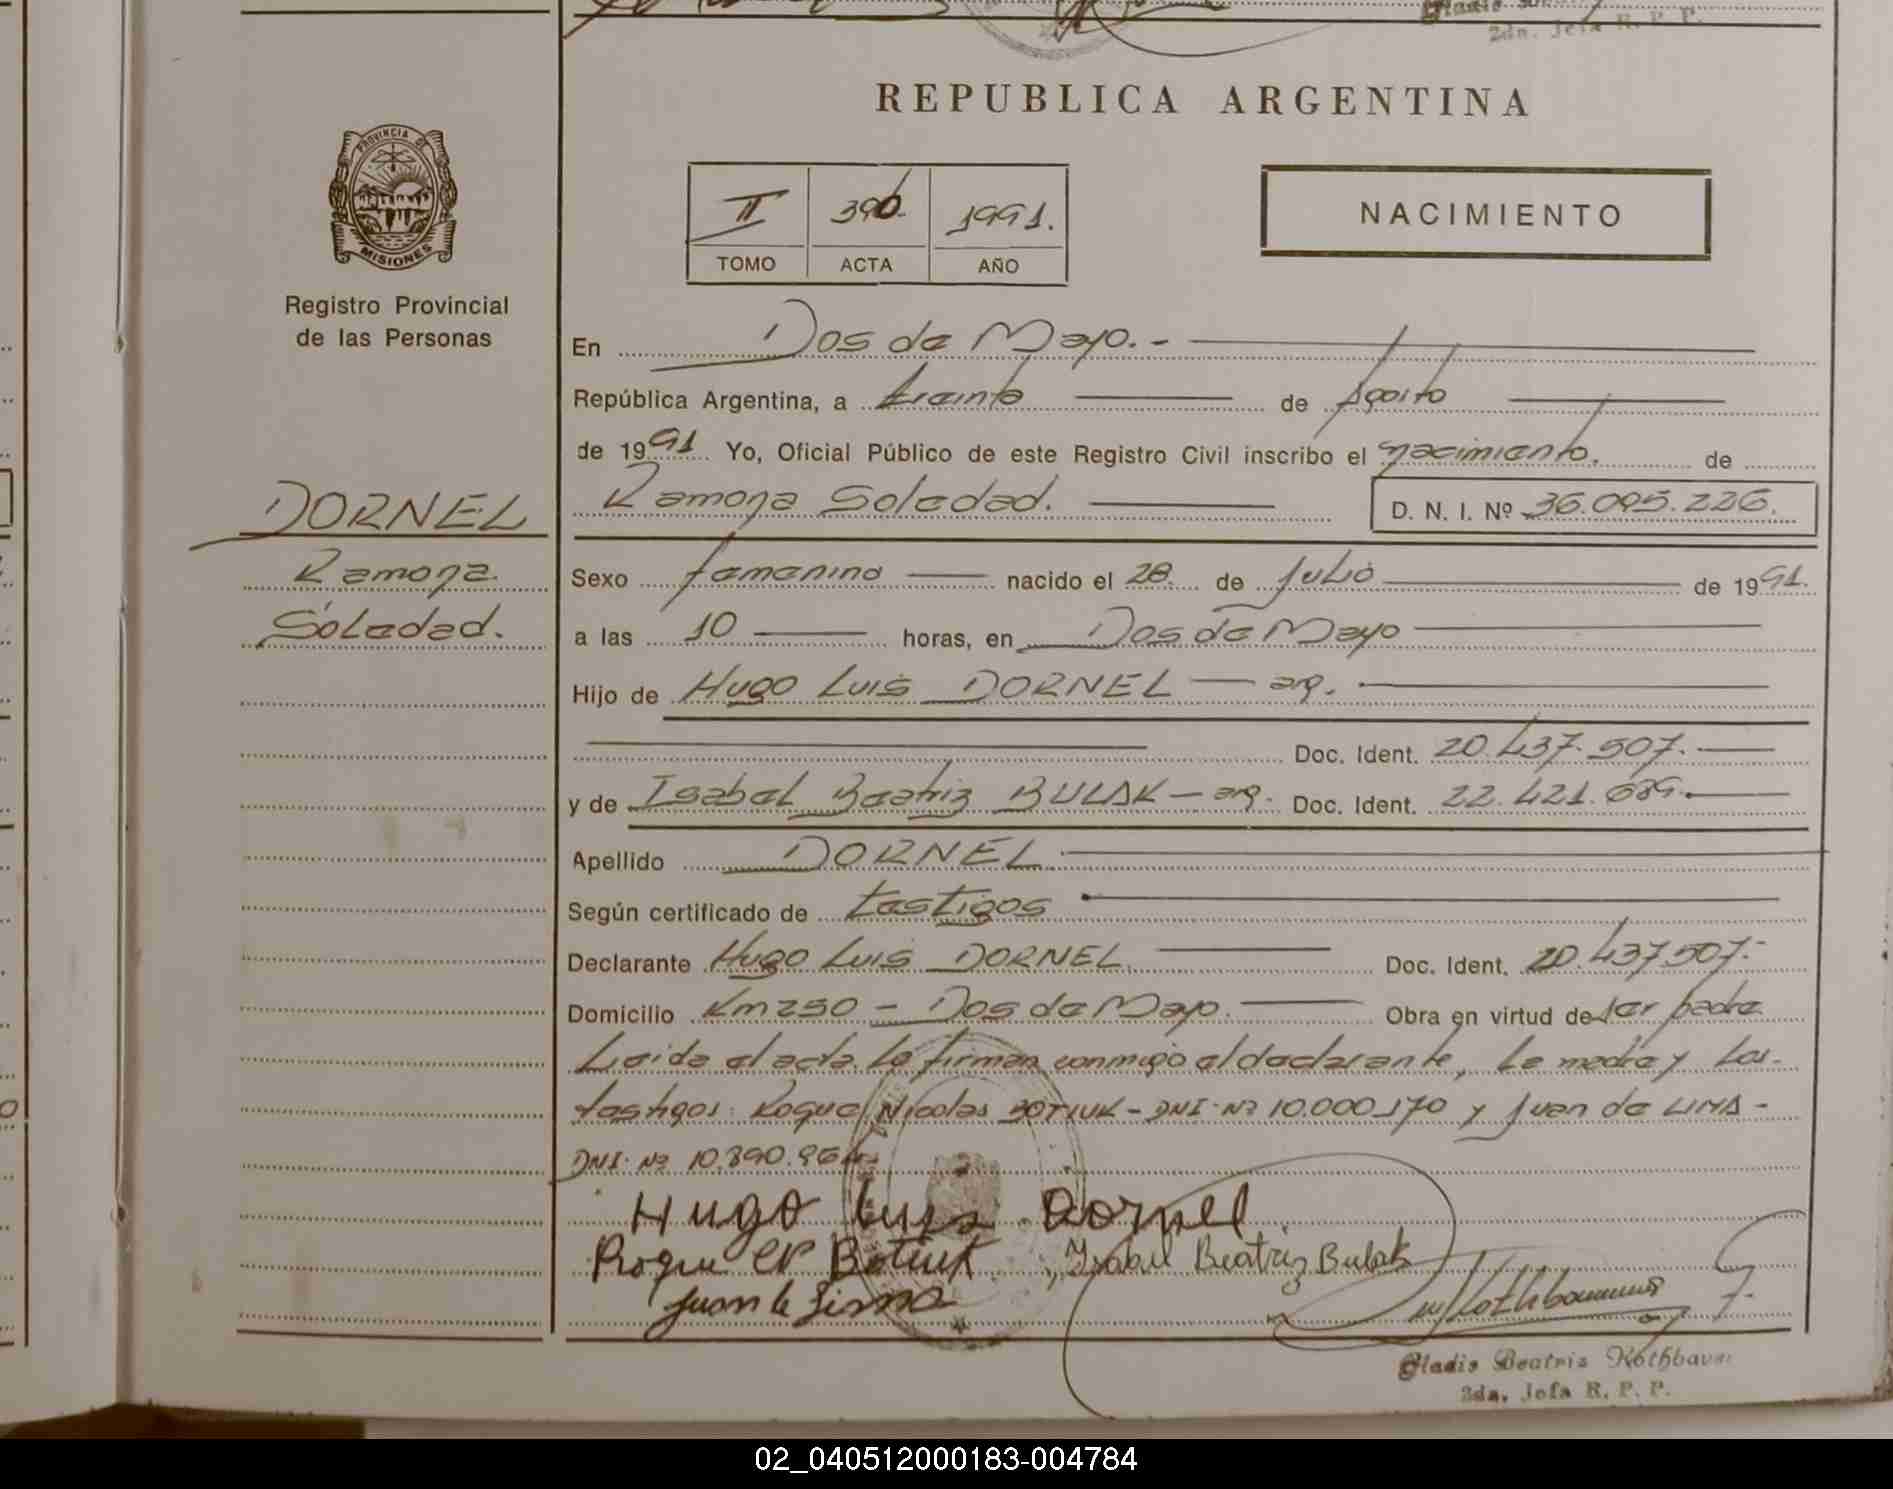 2da. Jefa R. P. P.
REPUBLICA ARGENTINA
PROVINCIA DE
MISIONES
Registro Provincial
de las Personas
II 390 1991.
TOMO ACTA AÑO
NACIMIENTO
En Dos de Mayo.-
República Argentina, a treinta de Agosto
de 1991 Yo, Oficial Público de este Registro Civil inscribo el nacimiento. de
Ramona Soledad. D. N. I. Nº 36.095.226.
DORNEL
Ramona
Soledad.
Sexo femenino nacido el 28 de Julio de 1991.
a las 10 horas, en Dos de Mayo
Hijo de Hugo Luis DORNEL — arg.
Doc. Ident. 20.437.507.
y de Isabel Beatriz BULAK — arg. Doc. Ident. 22.421.689.
Apellido DORNEL
Según certificado de testigos
Declarante Hugo Luis DORNEL Doc. Ident. 20.437.507.-
Domicilio Km 250 - Dos de Mayo. Obra en virtud de ser padre
Leida el acta la firman conmigo el declarante, la madre y los-
testigos: Roque Nicolas BOTIUK - DNI. Nº 10.000.170 y Juan de LIMA -
DNI. Nº 10.890.964
Hugo Luis Dornel
Roque N Botiuk Isabel Beatriz Bulak
Juan de Lima
Gladis Beatriz Rothbauer
2da. Jefa R. P. P.
02_040512000183-004784